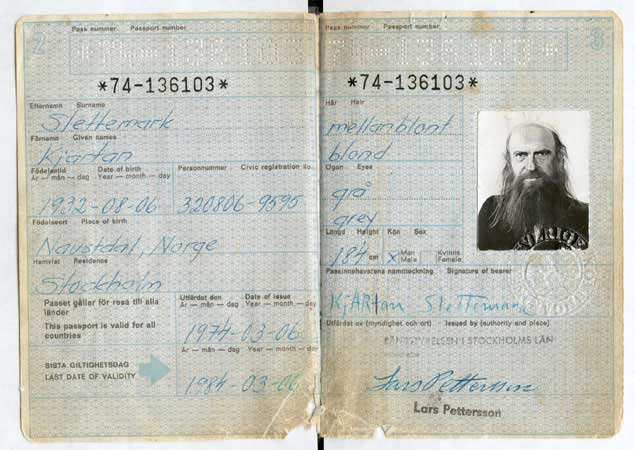 2
Pass nummer Passport number
*74-136103*
Efternamn Surname
Slettemark
Förnamn Given names
Kjartan
Födelsetid Date of birth
År — mån — dag Year — month — day
Personnummer Civic registration no.
1932-08-06
320806-9595
Födelseort Place of birth
Naustdal, Norge
Hemvist Residence
Stockholm
Passet gäller för resa till alla länder
This passport is valid for all countries
Utfärdat den Date of issue
År — mån — dag Year — month — day
1974-03-06
År — mån — dag Year — month — day
SISTA GILTIGHETSDAG
LAST DATE OF VALIDITY
1984-03-06
3
Pass nummer Passport number
*74-136103*
Hår Hair
mellanblont
blond
Ögon Eyes
grå
grey
Längd Height Kön Sex
184 cm x Man Male Kvinna Female
Passinnehavarens namnteckning Signature of bearer
KjARTan Slettemark
Utfärdat av (myndighet och ort) Issued by (authority and place)
LÄNSSTYRELSEN I STOCKHOLMS LÄN
Lars Pettersson
Lars Pettersson
SVERIGE